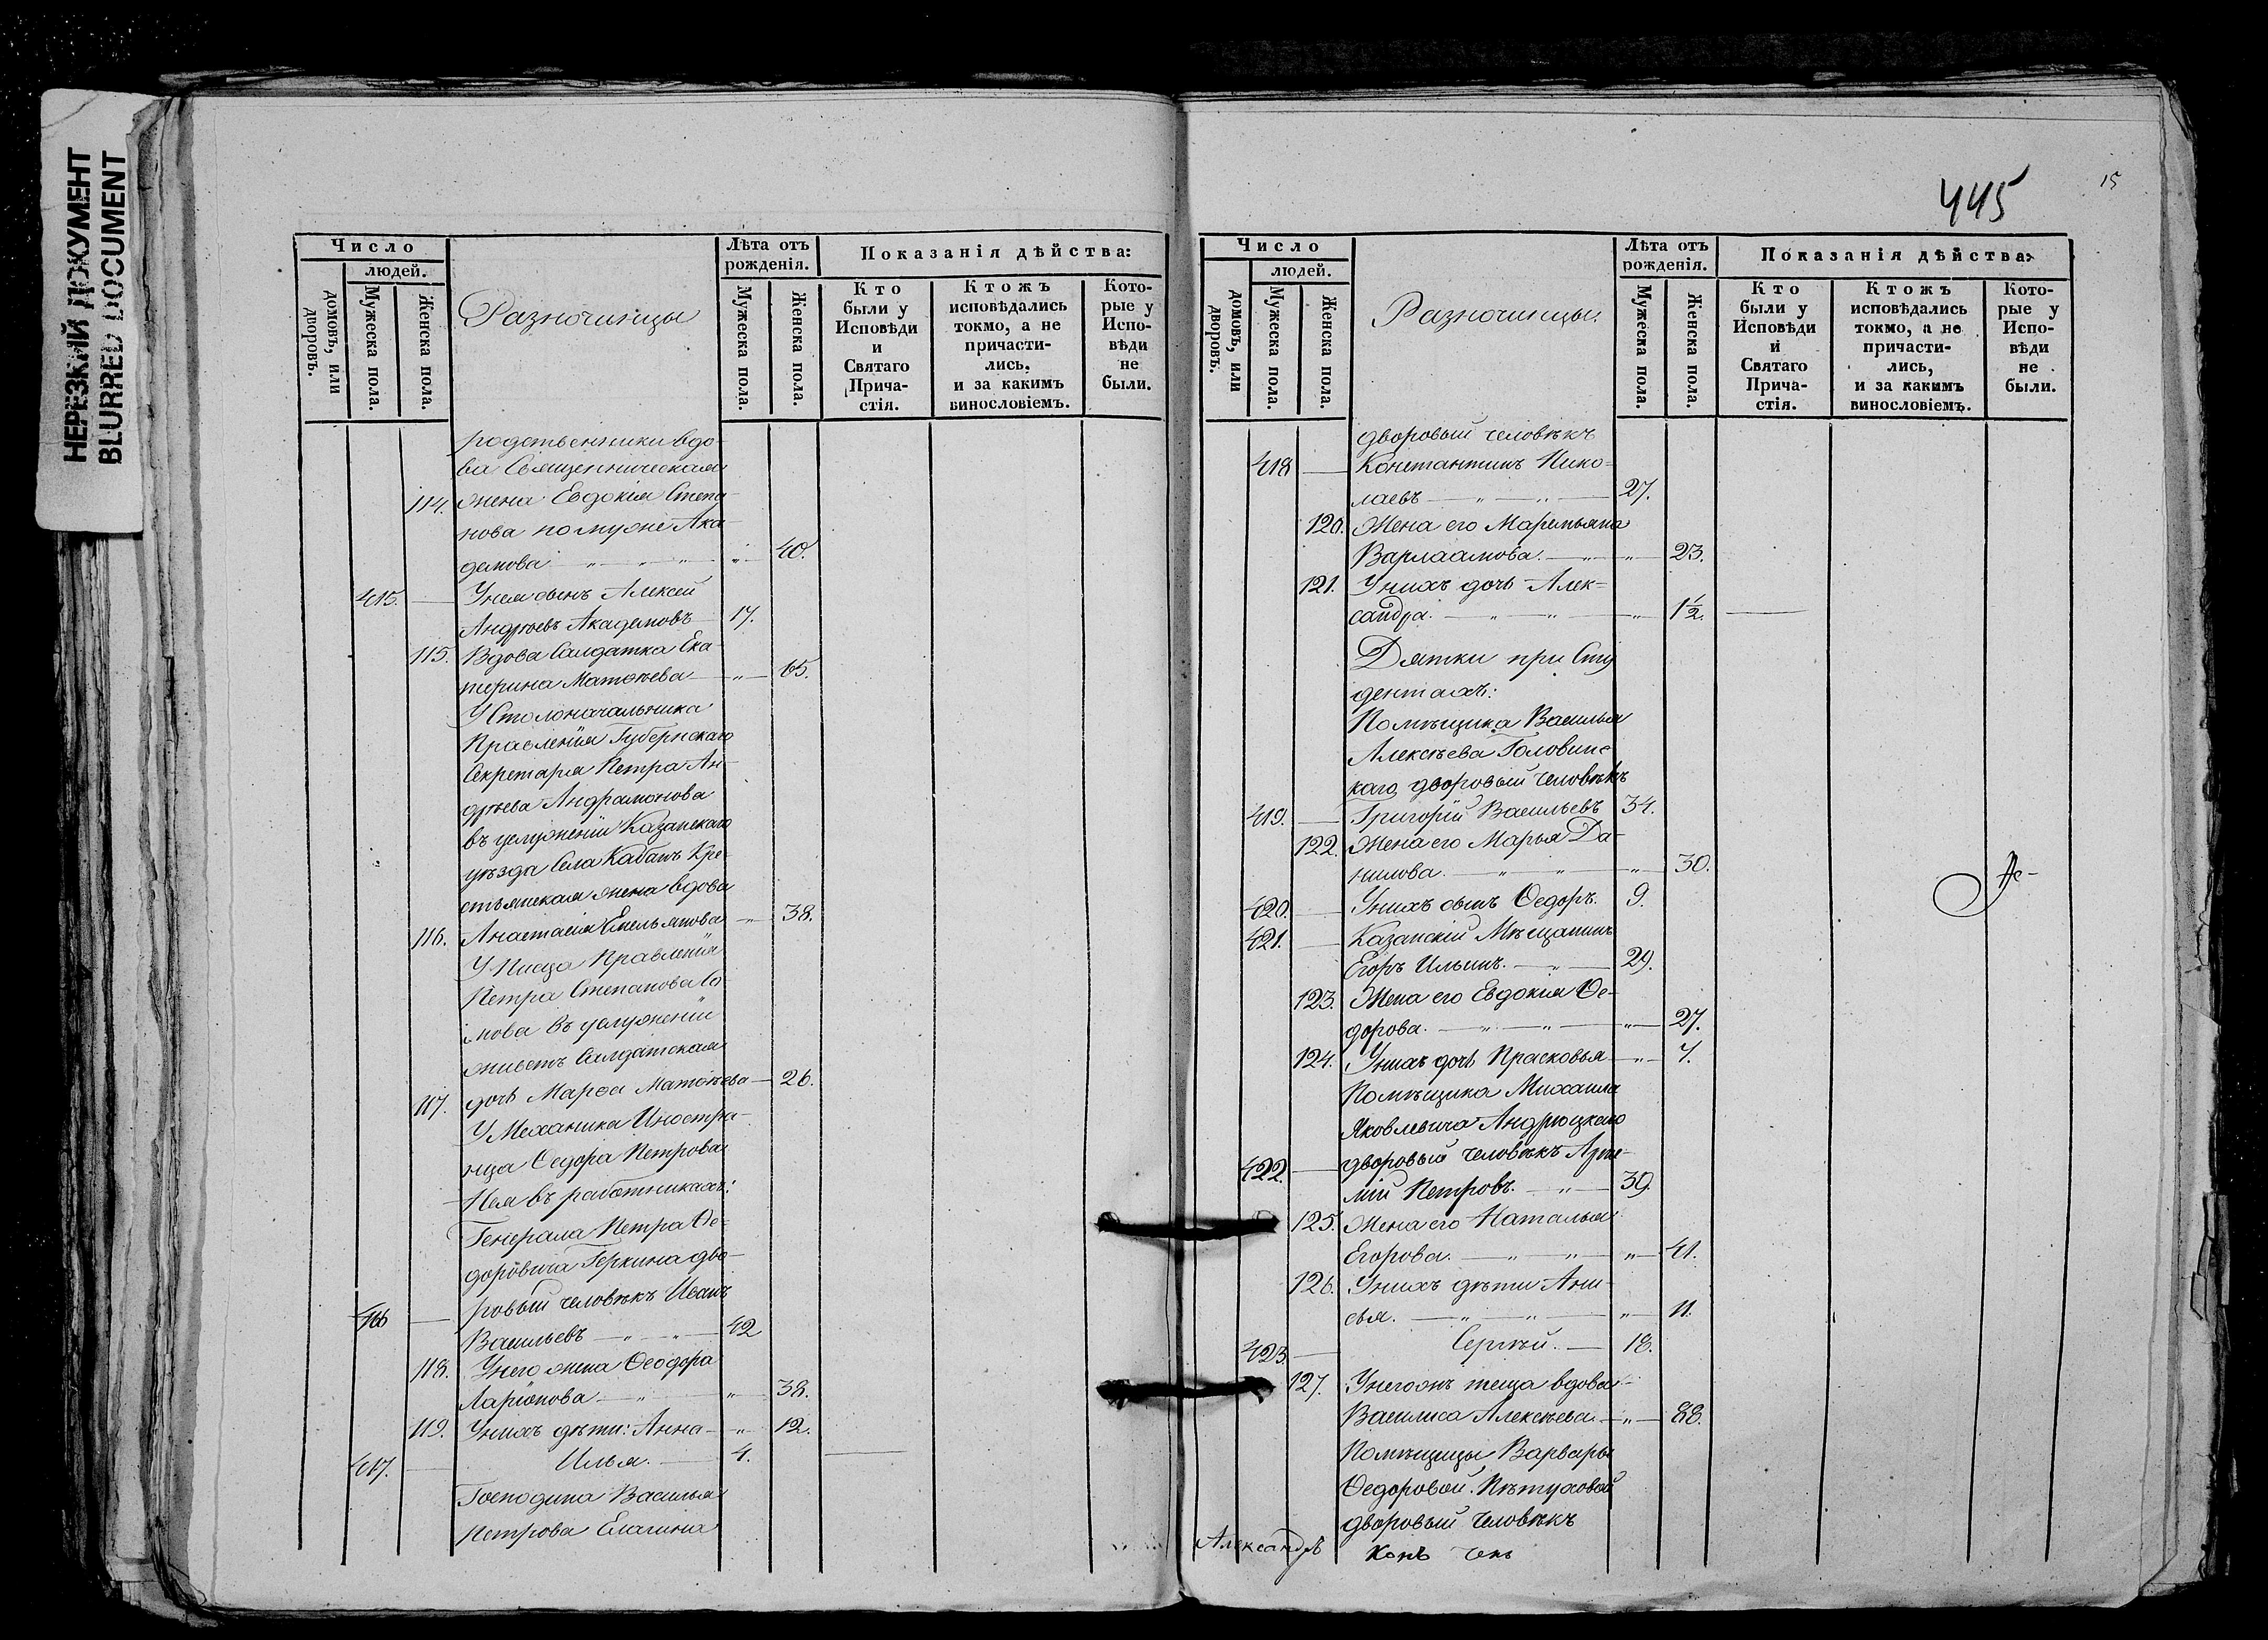 НЕРЕЗКИЙ ДОКУМЕНТ
BLURRED DOCUMENT
Число
людей.
домовъ, или дворовъ.
Мужеска пола.
Женска пола.
Разночинцы
Лѣта отъ рожденія.
Мужеска пола.
Женска пола.
Показанія дѣйства:
Кто были у Исповѣди и Святаго Прича-стія.
Ктожъ исповѣдались токмо, а не причасти-лись, и за какимъ винословіемъ.
Кото-рые у Испо-вѣди не были.
родственники вдо-
ва Священническая
114. жена Евдокія Степа-
нова по мужѣ Ака-
демова „ „ „ „ 40.
415. У нея сынъ Алексей
Андреевъ Академовъ 17.
115. Вдова Салдатка Ека-
терина Матвѣева „ 65.
У Столоначальника
Правленія Губернскаго
Секретаря Петра Ан-
дрѣева Андрамонова
въ услуженіи Казанскаго
уѣзда Села Кабанъ Кре-
стьянская жена вдова
116. Анастасія Емельянова „ 38.
У Писца Правленія
Петра Степанова
въ услуженіи
живетъ Салдатская
117. дочь Марѳа Матвѣева 26.
У Механика Иностра-
нца Ѳедора Петрова
въ работникахъ:
Генерала Петра Ѳе-
доровича Геркина дво-
416 ровый человѣкъ Иванъ
Васильевъ „ „ 42
118. У него жена Ѳеодора
Ларіонова „ „ 38.
119. У нихъ дѣти: Анна „ 12.
417. Илья. 4.
Господина Василья
Петрова Елагина
445
15
Число
людей.
домовъ, или дворовъ.
Мужеска пола.
Женска пола.
Разночинцы.
Лѣта отъ рожденія.
Мужеска пола.
Женска пола.
Показанія дѣйства:
Кто были у Исповѣди и Святаго Прича-стія.
Ктожъ исповѣдались токмо, а не причасти-лись, и за какимъ винословіемъ.
Кото-рые у Испо-вѣди не были.
дворовый человѣкъ
418 Константинъ Нико-
лаевъ „ „ 27.
120. Жена его Маремьяна
Варлаамова. „ „ 23.
121. У нихъ дочь Алек-
сандра. „ „ „ 1½.
Дятки при Сту
дентахъ:
Помѣщика Василья
Алексѣева Головинс
каго дворовый человѣкъ
419. Григорій Васильевъ 34.
122. Жена его Марья Да-
нилова. „ „ „ 30.
420. У нихъ сынъ Ѳедоръ. 9.
421. Казанскій Мѣщанинъ
Егоръ Ильинъ. „ 29.
123. Жена его Евдокія Ѳе-
дорова. „ „ „ 27.
124. У нихъ дочь Прасковья „ 7.
Помѣщика Михаила
Яковлевича Андрюцкаго
422. дворовый человѣкъ Арте-
мій Петровъ. „ 39.
125. Жена его Наталья
Егорова. „ „ „ 41.
126. У нихъ дѣти Ани-
сья. „ „ „ 11.
423. Сергѣй. 18.
127. У негожъ теща вдова
Василиса Алексѣева „ 88.
Помѣщицы Варвары
Ѳедоровой Пѣтуховой
дворовый человѣкъ
Александръ